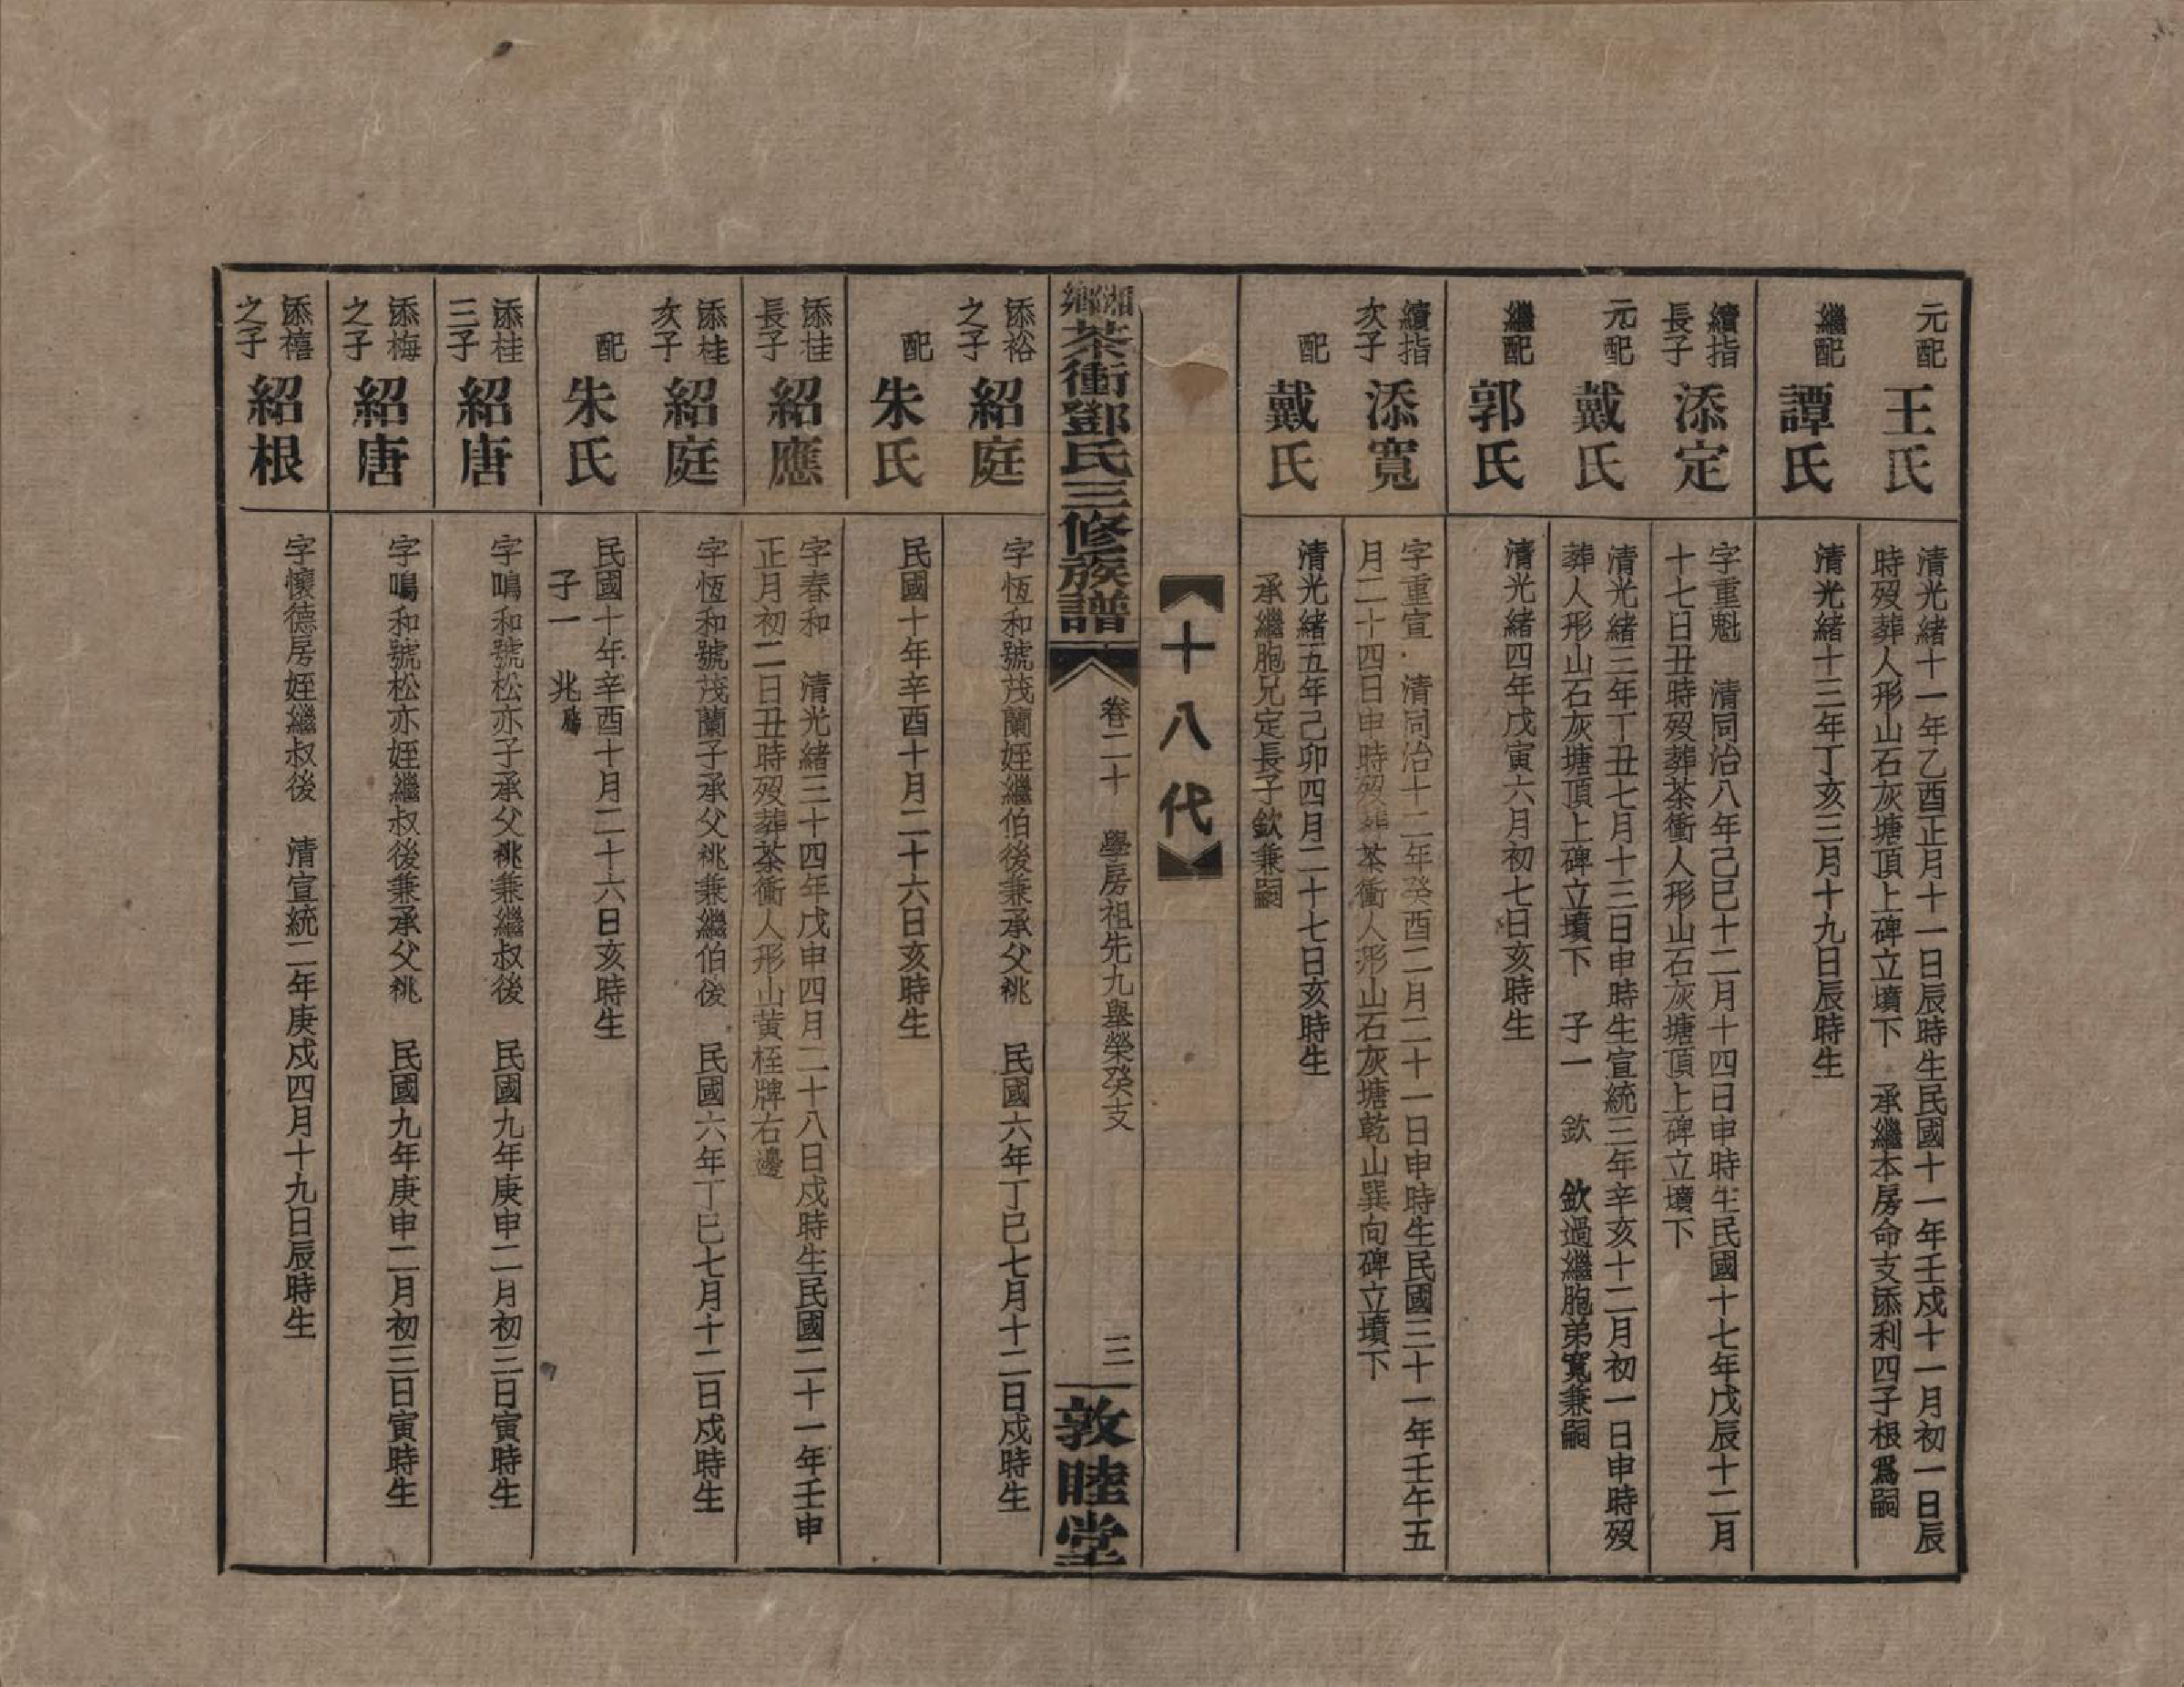 元配
王氏
清光緒十一年乙酉正月十一日辰時生民國十一年壬戍十一月初一日辰
時歿葬人形山石灰塘頂上碑立墳下　承繼本房命支添利四子根爲嗣
繼配
譚氏
清光緒十三年丁亥三月十九日辰時生
續指
長子
添定
字重魁　清同治八年己巳十二月十四日申時生民國十七年戊辰十二月
十七日丑時歿葬茶衝人形山石灰塘頂上碑立墳下
元配
戴氏
清光緒三年丁丑七月十三日申時生宣統三年辛亥十二月初一日申時歿
葬人形山石灰塘頂上碑立墳下　子一　欽　欽過繼胞弟寬兼嗣
繼配
郭氏
清光緒四年戊寅六月初七日亥時生
續指
次子
添寬
字重宣　清同治十二年癸酉二月二十一日申時生民國三十一年壬午五
月二十四日申時歿葬茶衝人形山石灰塘乾山巽向碑立墳下
配
戴氏
清光緒五年己卯四月二十七日亥時生
承繼胞兄定長子欽兼嗣
【十八代】
湘鄉茶衝鄧氏三修族譜
卷二十　學房祖先九舉榮癸支
三
敦睦堂
添裕
之子
紹庭
字恆和號茂蘭姪繼伯後兼承父祧　民國六年丁巳七月十二日戍時生
配
朱氏
民國十年辛酉十月二十六日亥時生
添桂
長子
紹應
字春和　清光緒三十四年戊申四月二十八日戍時生民國二十一年壬申
正月初二日丑時歿葬茶衝人形山黃桎牌右邊
添桂
次子
紹庭
字恆和號茂蘭子承父祧兼繼伯後　民國六年丁巳七月十二日戍時生
配
朱氏
民國十年辛酉十月二十六日亥時生
子一　兆
添桂
三子
紹唐
字鳴和號松亦子承父祧兼繼叔後　民國九年庚申二月初三日寅時生
添梅
之子
紹唐
字鳴和號松亦姪繼叔後兼承父祧　民國九年庚申二月初三日寅時生
添禧
之子
紹根
字懷德房姪繼叔後　清宣統二年庚戍四月十九日辰時生